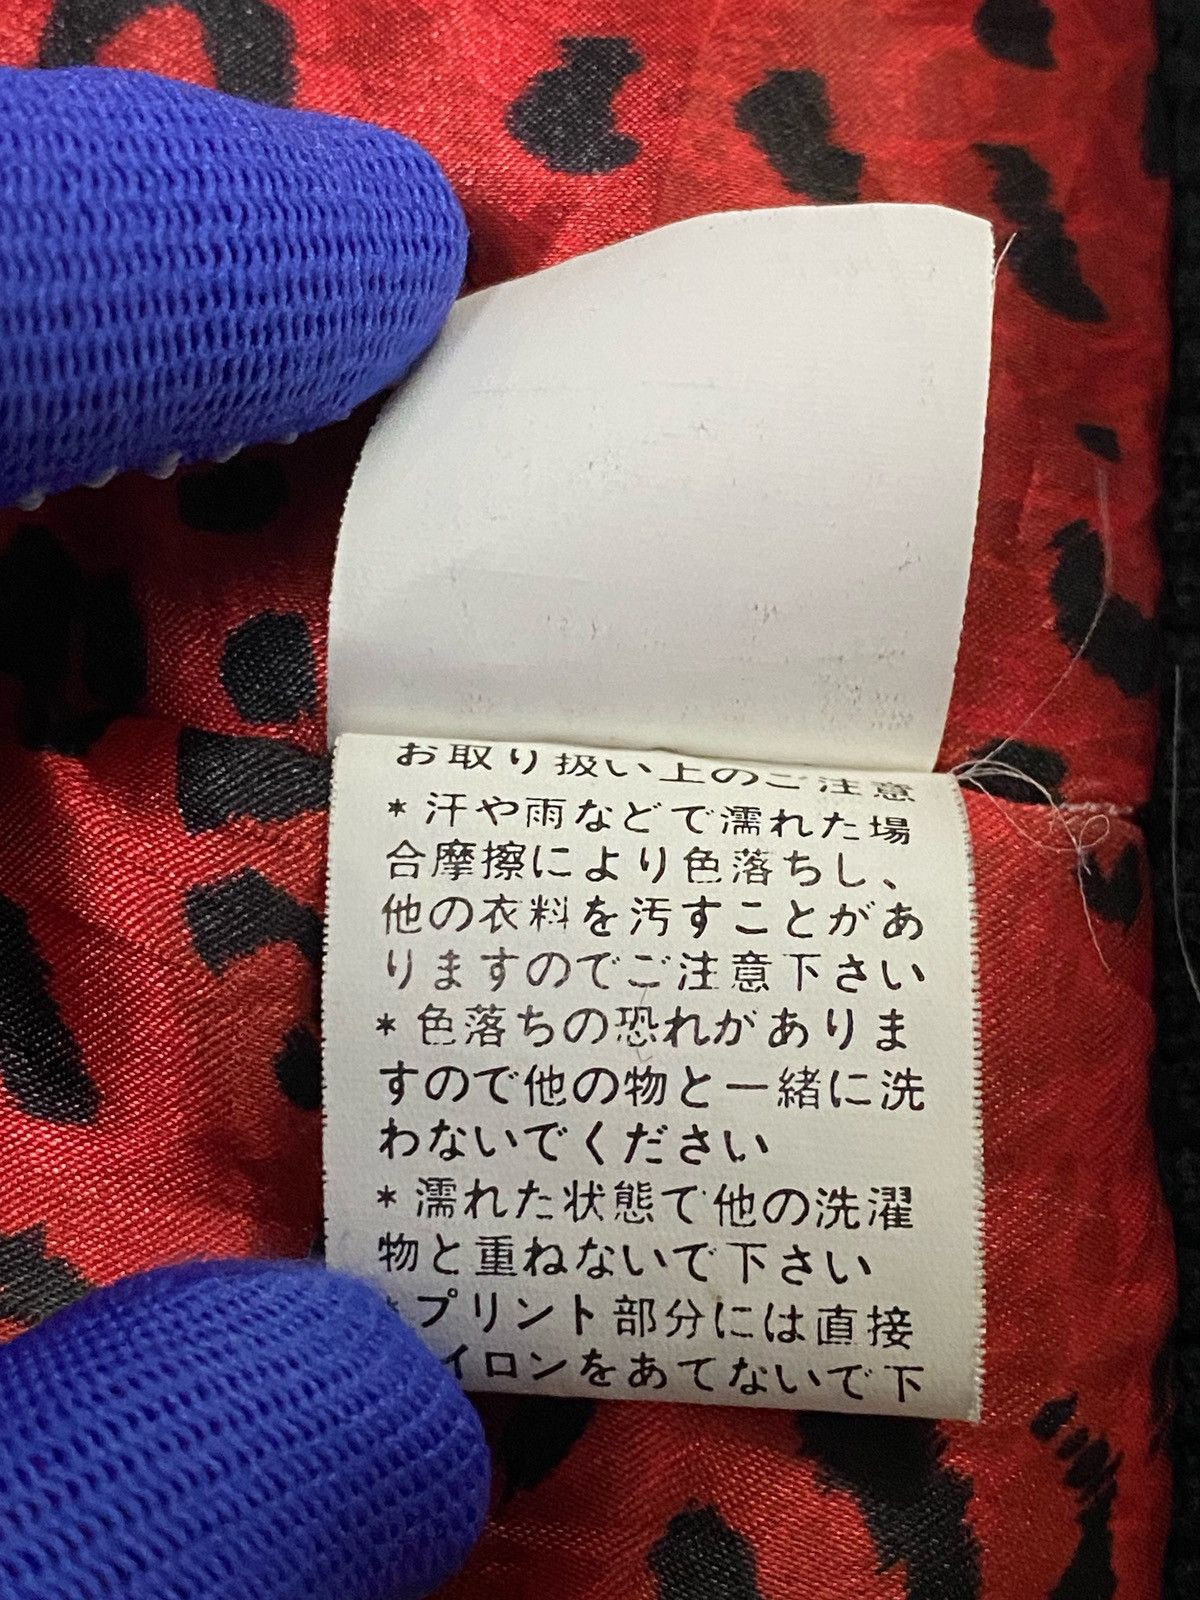 お取り扱い上のご注意
*汗や雨などで濡れた場
合摩擦により色落ちし、
他の衣料を汚すことがあ
りますのでご注意下さい
*色落ちの恐れがありま
すので他の物と一緒に洗
わないでください
*濡れた状態で他の洗濯
物と重ねないで下さい
*プリント部分には直接
イロンをあてないで下